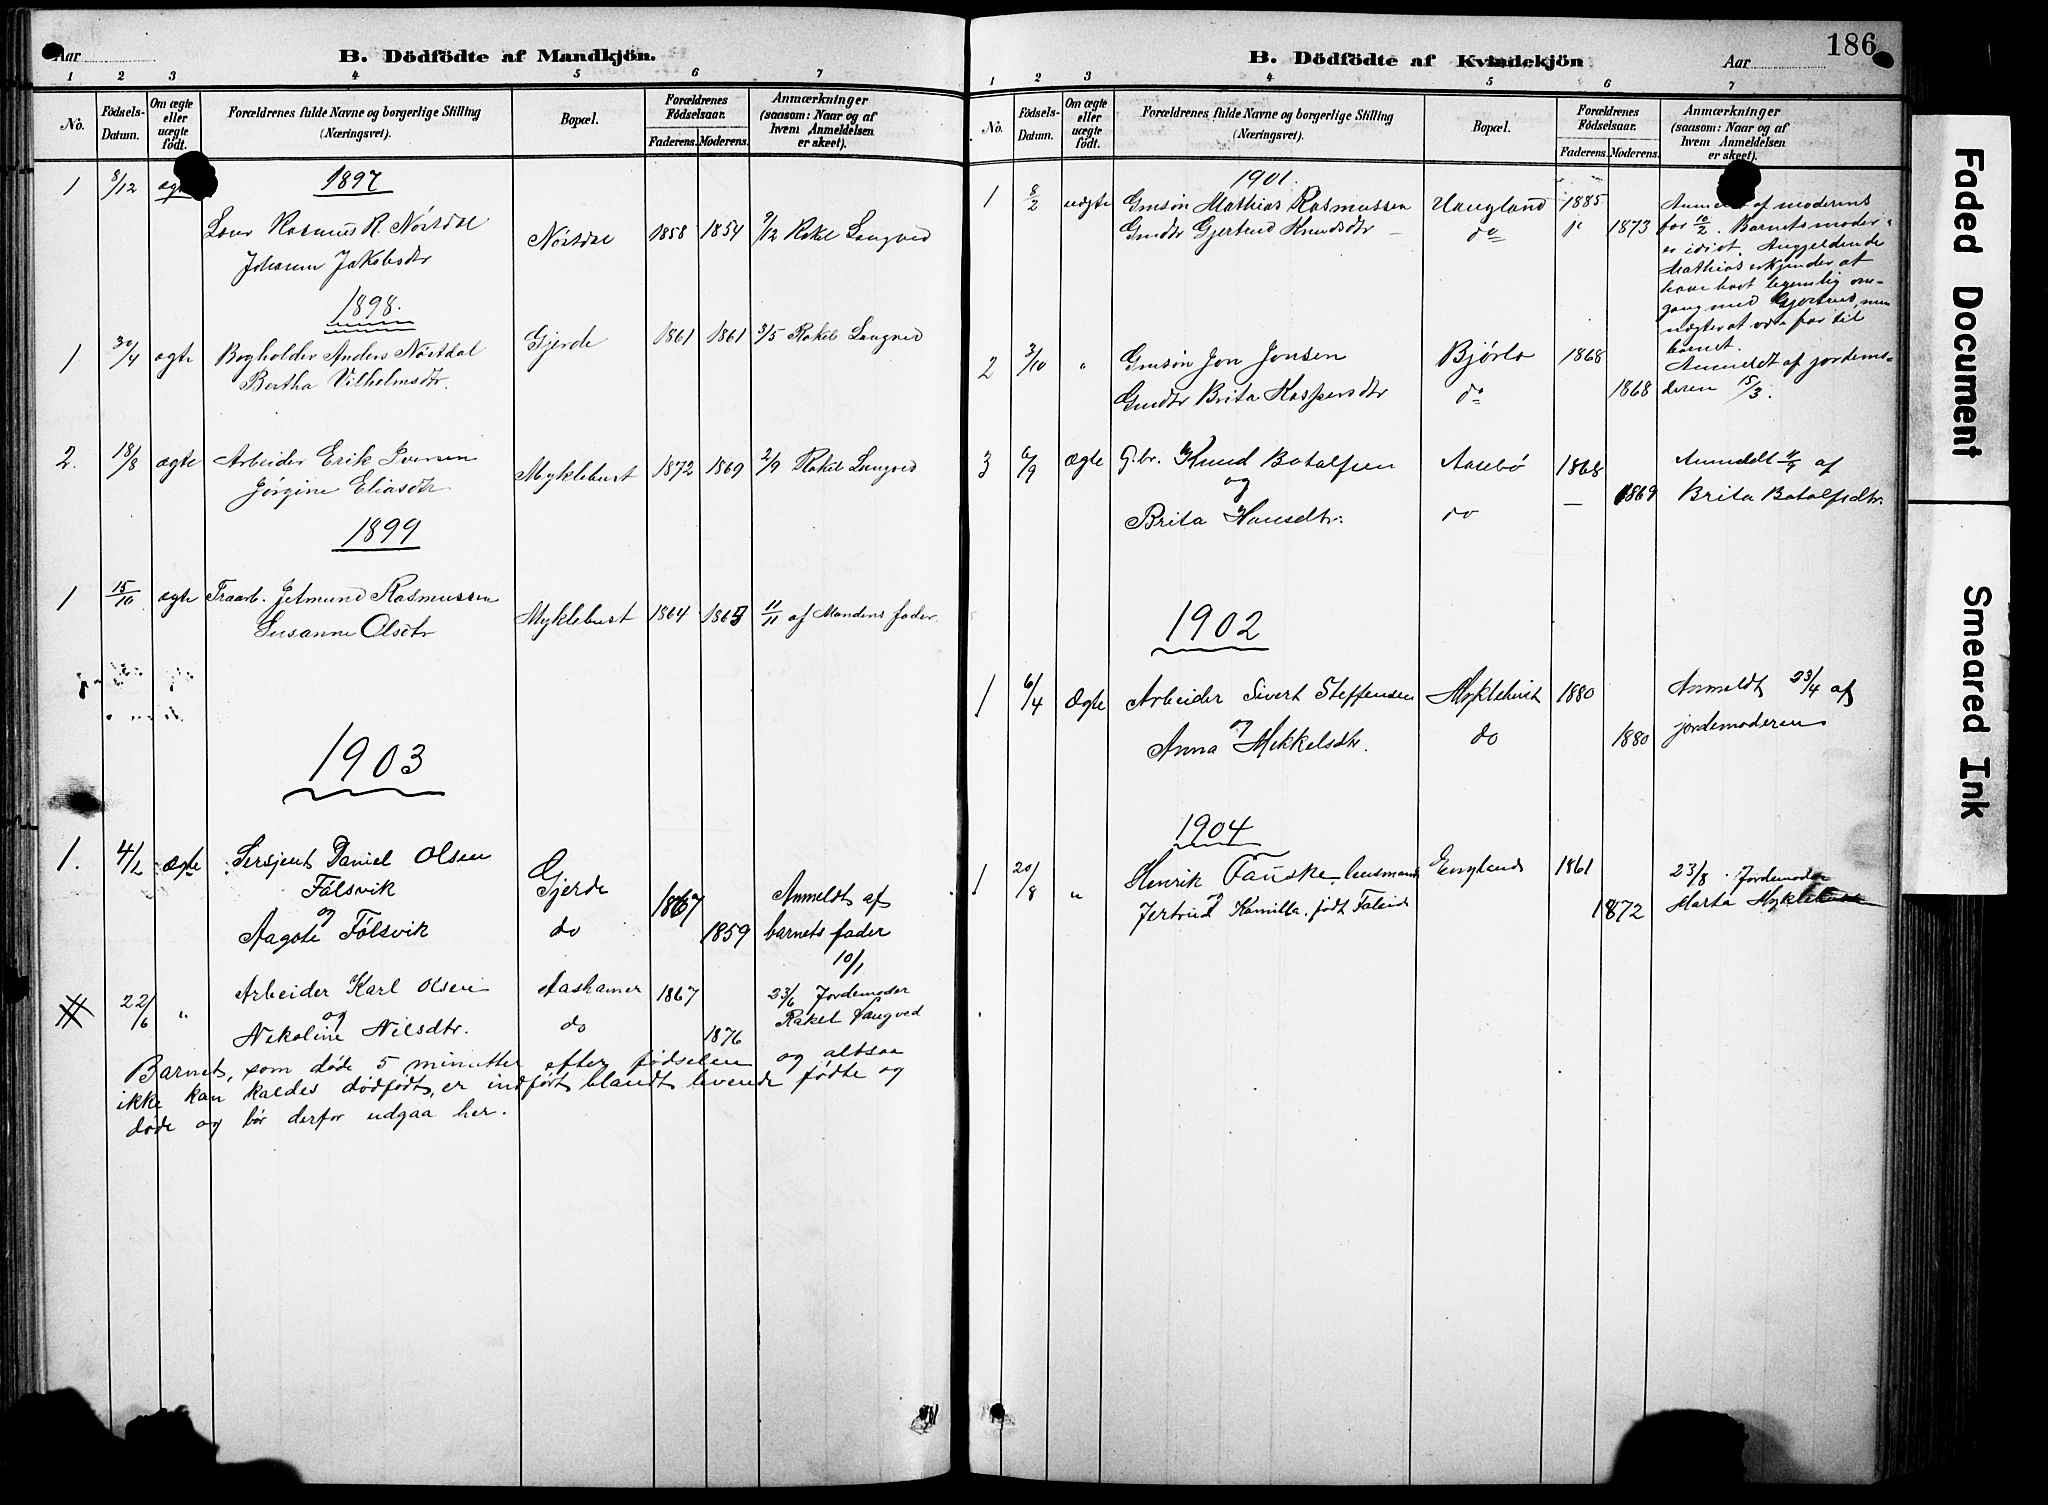 Aar
B. Dödfödte af Mandkjön.
1 2 3 4 5 6 7
No. Födsels-Datum. Om ægte eller uægte födt. Forældrenes fulde Navne og borgerlige Stilling (Næringsvei). Bopæl. Forældrenes Födselsaar. Faderens. Moderens. Anmærkninger (saasom: Naar og af hvem Anmeldelsen er skeet).
1897
1 8/12 ægte
Rasmus R. Nöstdal Nöstdal 1858 1854 9/12 Rakel Langved
Johanne Jakobsdtr
1898.
1 30/4 ægte Bogholder Anders Nöstdal Gjerde 1861 1861 3/5 Rakel Langved
Bertha Vilhelmsdtr.
2. 18/8 ægte Arbeider Erik Iversen Myklebust 1872 1869 2/9 Rakel Langved
Jörgine Eliasdtr
1899
1 15/10 ægte Træarb. Jetmund Rasmussen
Susanne Olsdtr Myklebust 1864 11/11 af Mandens fader.
1903
1. 4/1 ægte Sersjent Daniel Olsen
Fölsvik Gjerde 1867 Anmeldt af
og
Aagote Fölsvik do 1859 barnets fader
10/1
22/6 " Arbeider Karl Olsen Aashamer 1867 23/6 Jordemoder
og Rakel Langved
Nikoline Nilsdtr. do 1876
Barnet, som døde 5 minutter efter fødselen og altsaa
ikke kan kaldes dødfødt, er indført blandt levende fødte og
døde og bør derfor udgaa her.
186
B. Dödfödte af Kvindekjön
Aar
1 2 3 4 5 6 7
No. Födsels-Datum. Om ægte eller uægte födt. Forældrenes fulde Navne og borgerlige Stilling (Næringsvei). Bopæl. Forældrenes Födselsaar. Faderens. Moderens. Anmærkninger (saasom: Naar og af hvem Anmeldelsen er skeet).
1901.
1 8/2 uægte Gmsøn Mathias Rasmussen Haugland 1885 Anmeldt af moderens
Gmdtr Gjertrud Knudsdtr do 1873 far 10/2. Barnets moder
er idiot. Angjeldende
Mathias erkjender at
have havt legemlig om-
gang med Gjertrud, men
nægter at være far til
barnet.
2 3/10 " Gmsøn Jon Jonsen Bjørlo 1868 Anmeldt af jordemo-
Gmdtr Brita Kaspersdtr do 1868 deren 15/3.
3 6/9 Ægte G.br. Knud Botolfsen Aasebø 1868 Anmeldt 11/9 af
og 1869 Brita Botolfsdtr.
Brita Hansdtr. do
1902
1 6/4 Ægte Arbeider Sivert Steffensen Myklebust 1880 Anmeldt 23/4 af
og
Anna Mikkelsdtr. do 1880 jordemoderen
1904
1 20/8 " Henrik Fauske, lensmand Eneglands 1861 23/8. Jordemoder
og
Jertrud Kamilla, født Faleide 1872 Marta Myklebust
Faded Document
Smeared Ink